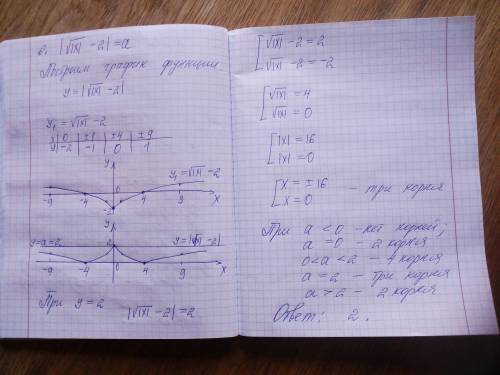 6. |√|x| - 2| = a
Построим график функции
y = |√|x| - 2|
y₁ = √|x| - 2
x | 0 | ±1 | ±4 | ±9
y | -2 | -1 | 0 | 1
y
y₁ = √|x| - 2
0
-9 -4 4 9 x
-2
y
y = a = 2 2 y = |√|x| - 2|
-9 -4 0 4 9 x
При y = 2
|√|x| - 2| = 2
[ √|x| - 2 = 2
√|x| - 2 = -2
[ √|x| = 4
√|x| = 0
[ |x| = 16
|x| = 0
[ x = ±16
x = 0 - три корня
При a < 0 - нет корней;
a = 0 - 2 корня
0 < a < 2 - 4 корня
a = 2 - три корня
a > 2 - 2 корня
Ответ: 2.